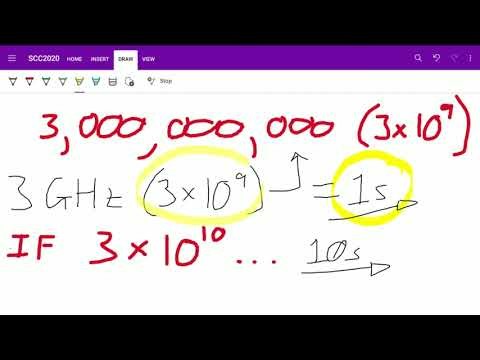 SCC2020 HOME INSERT DRAW VIEW
Stop
3,000,000,000 (3×10⁹)
3 GHz (3×10⁹) = 1s
IF 3×10¹⁰... 10s